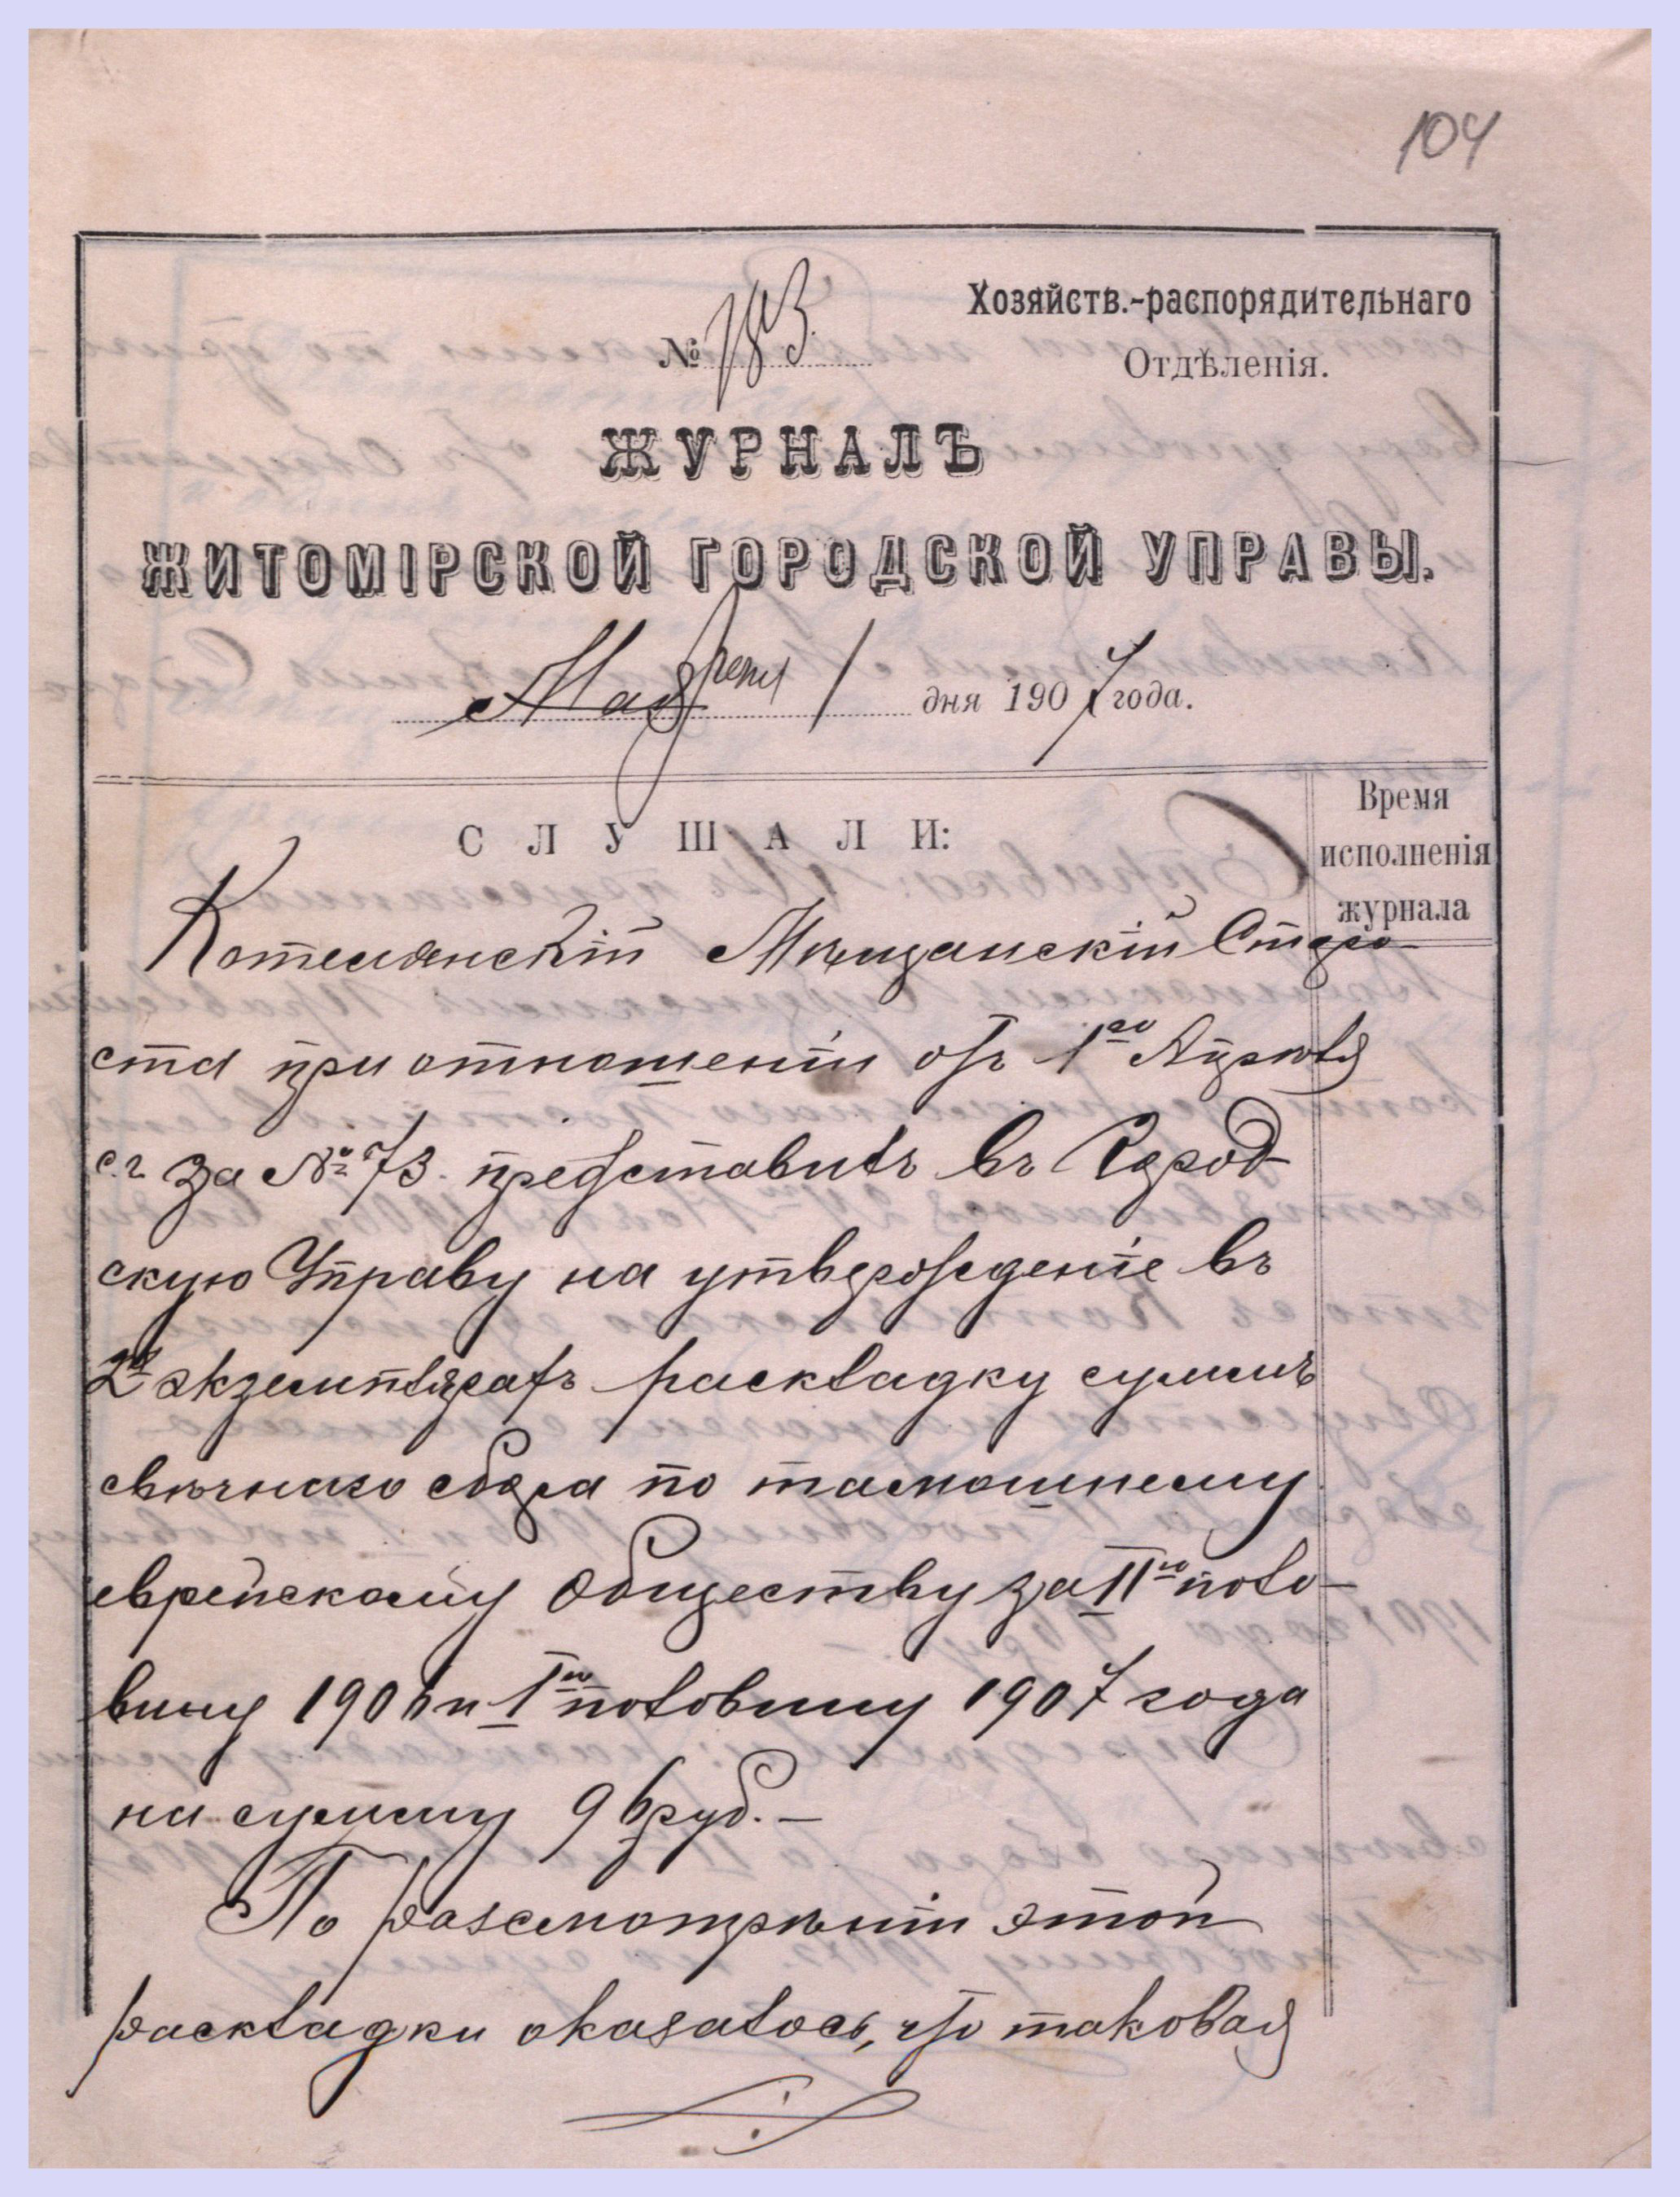 104
№ 183.
Хозяйств.-распорядительнаго
Отдѣленія.
ЖУРНАЛЪ
ЖИТОМІРСКОЙ ГОРОДСКОЙ УПРАВЫ.
Мая 1 дня 1907 года.
СЛУШАЛИ:
Время
исполненія
журнала
Котелянскій Мѣщанскій Старо-
ста при отношеніи отъ 1го Апрѣля
с.г за № 73. представилъ въ Город-
скую Управу на утвержденіе въ
2хъ экземплярахъ раскладку суммъ
свѣчнаго сбора по тамошнему
еврейскому обществу за IIю поло-
вину 1906 и Iю половину 1907 года
на сумму 96 руб. –
По разсмотрѣніи этой
раскладки оказалось, что таковая